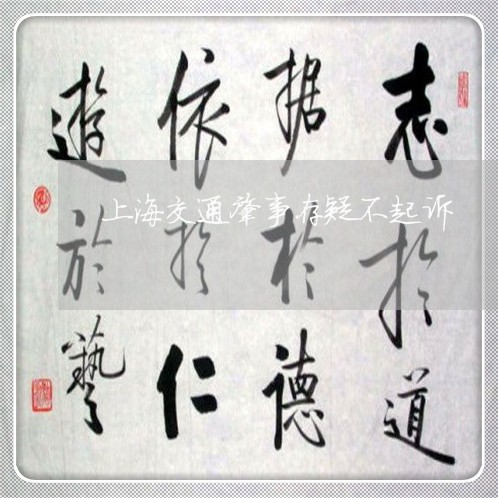 志於道
据於德
依於仁
遊於藝
上海交通肇事存疑不起诉